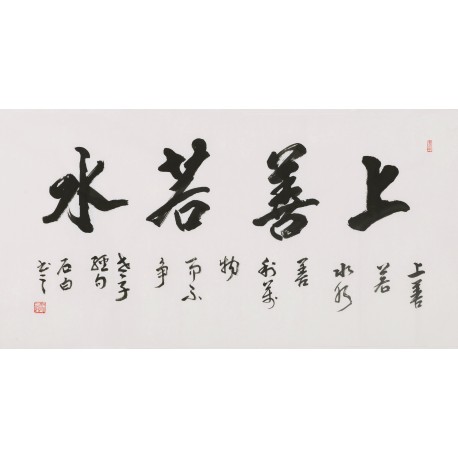 上善若水
上善
若
水水
善
利萬
物
而不
爭
老子
經句
书之